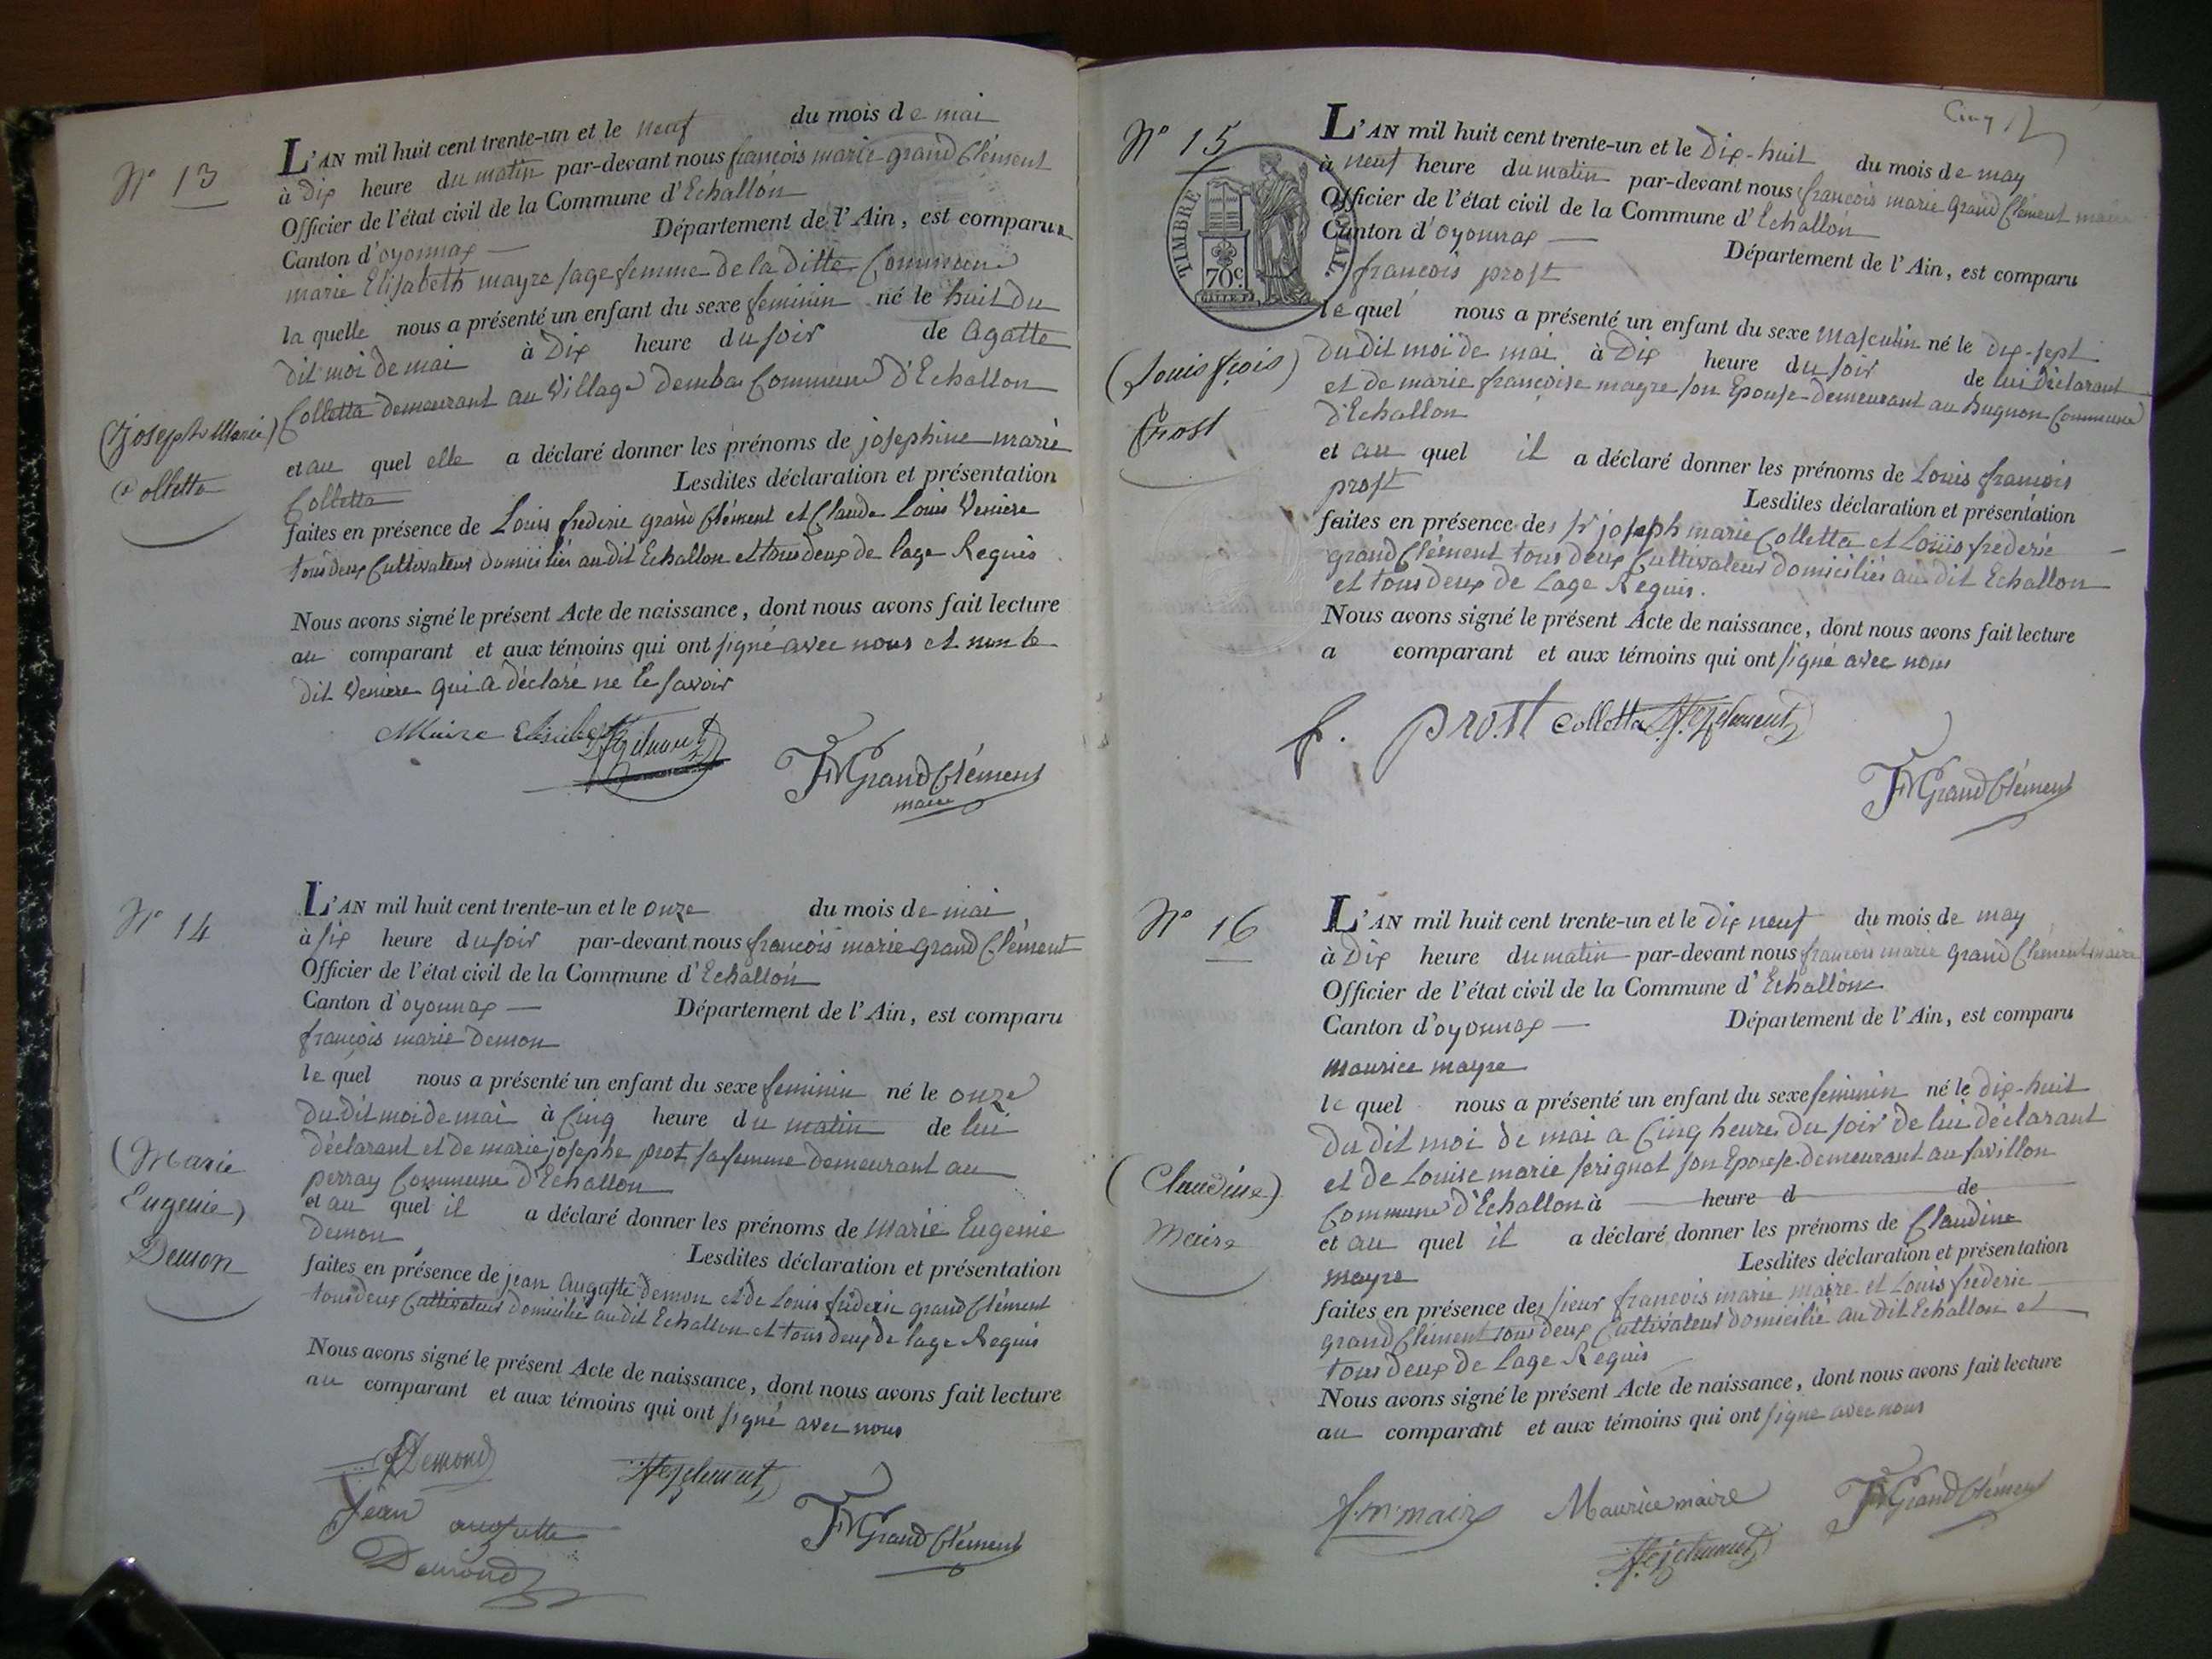 N° 13
L'AN mil huit cent trente-un et le neuf du mois de mai
à Dix heure du matin par-devant nous françois marie grand Clément
Officier de l'état civil de la Commune d'Echallon
Canton d'oyonnax — Département de l'Ain, est comparu
marie Elisabeth mayre sage femme de la ditte Commune
la quelle nous a présenté un enfant du sexe feminin né le huit du
dit moi de mai à Dix heure du soir de Agatte
Colletta demeurant au Village Dembas Commune d'Echallon
(Joseph Marie)
Colletta
et au quel elle a déclaré donner les prénoms de josephine marie
Colletta Lesdites déclaration et présentation
faites en présence de Louis frederic grand Clément et Claude Louis Veniere
tous deux Cultivateurs domiciliés audit Echallon et tous deux de lage Requis
Nous avons signé le présent Acte de naissance, dont nous avons fait lecture
au comparant et aux témoins qui ont signé avec nous et non le
dit Veniere qui a déclaré ne le savoir
Maire Elisabeth
FM Grand Clément
maire
N° 14
L'AN mil huit cent trente-un et le onze du mois de mai
à six heure du soir par-devant nous françois marie grand Clément
Officier de l'état civil de la Commune d'Echallon
Canton d'oyonnax — Département de l'Ain, est comparu
françois marie Demon
le quel nous a présenté un enfant du sexe feminin né le onze
du dit moi de mai à Cinq heure du matin de lui
déclarant et de marie josephe prot sa femme demeurant au
perray Commune d'Echallon
(Marie
Eugenie)
Demon
et au quel il a déclaré donner les prénoms de Marie Eugenie
Demon Lesdites déclaration et présentation
faites en présence de jean Auguste demon et de Louis frederic grand Clément
tous deux Cultivateurs domicilié audit Echallon et tous deux de lage Requis
Nous avons signé le présent Acte de naissance, dont nous avons fait lecture
au comparant et aux témoins qui ont signé avec nous
Demond
jean auguste
Demond
FM Grand Clément
Cinq
N° 15
TIMBRE ROYAL.
70c.
L'AN mil huit cent trente-un et le Dix-huit du mois de may
à neuf heure du matin par-devant nous françois marie grand Clément maire
Officier de l'état civil de la Commune d'Echallon
Canton d'oyonnax — Département de l'Ain, est comparu
françois prost
le quel nous a présenté un enfant du sexe masculin né le dix-sept
du dit moi de mai à Dix heure du soir de lui déclarant
et de marie françoise mayre son Epouse demeurant au hugnon Commune
d'Echallon
(Louis fçois)
Prost
et au quel il a déclaré donner les prénoms de Louis françois
prost Lesdites déclaration et présentation
faites en présence des Sr joseph marie Colletta et Louis frederic
grand Clément tous deux Cultivateurs domiciliés audit Echallon
et tous deux de Lage Requis.
Nous avons signé le présent Acte de naissance, dont nous avons fait lecture
a comparant et aux témoins qui ont signé avec nous
f. prost Colletta
FM Grand Clément
N° 16
L'AN mil huit cent trente-un et le dix neuf du mois de may
à Dix heure du matin par-devant nous françois marie grand Clément maire
Officier de l'état civil de la Commune d'Echallon
Canton d'oyonnax — Département de l'Ain, est comparu
maurice mayre
le quel nous a présenté un enfant du sexe feminin né le dix-huit
du dit moi de mai a Cinq heures du soir de lui déclarant
et de Louise marie serignat son Epouse demeurant au favillon
Commune d'Echallon à — heure d — de
(Claudine)
Maire
et au quel il a déclaré donner les prénoms de Claudine
mayre Lesdites déclaration et présentation
faites en présence des sieur françois marie maire et Louis frederic
grand Clément tous deux Cultivateurs domicilié audit Echallon et
tous deux de Lage Requis
Nous avons signé le présent Acte de naissance, dont nous avons fait lecture
au comparant et aux témoins qui ont signé avec nous
f. m. maire Maurice maire FM Grand Clément